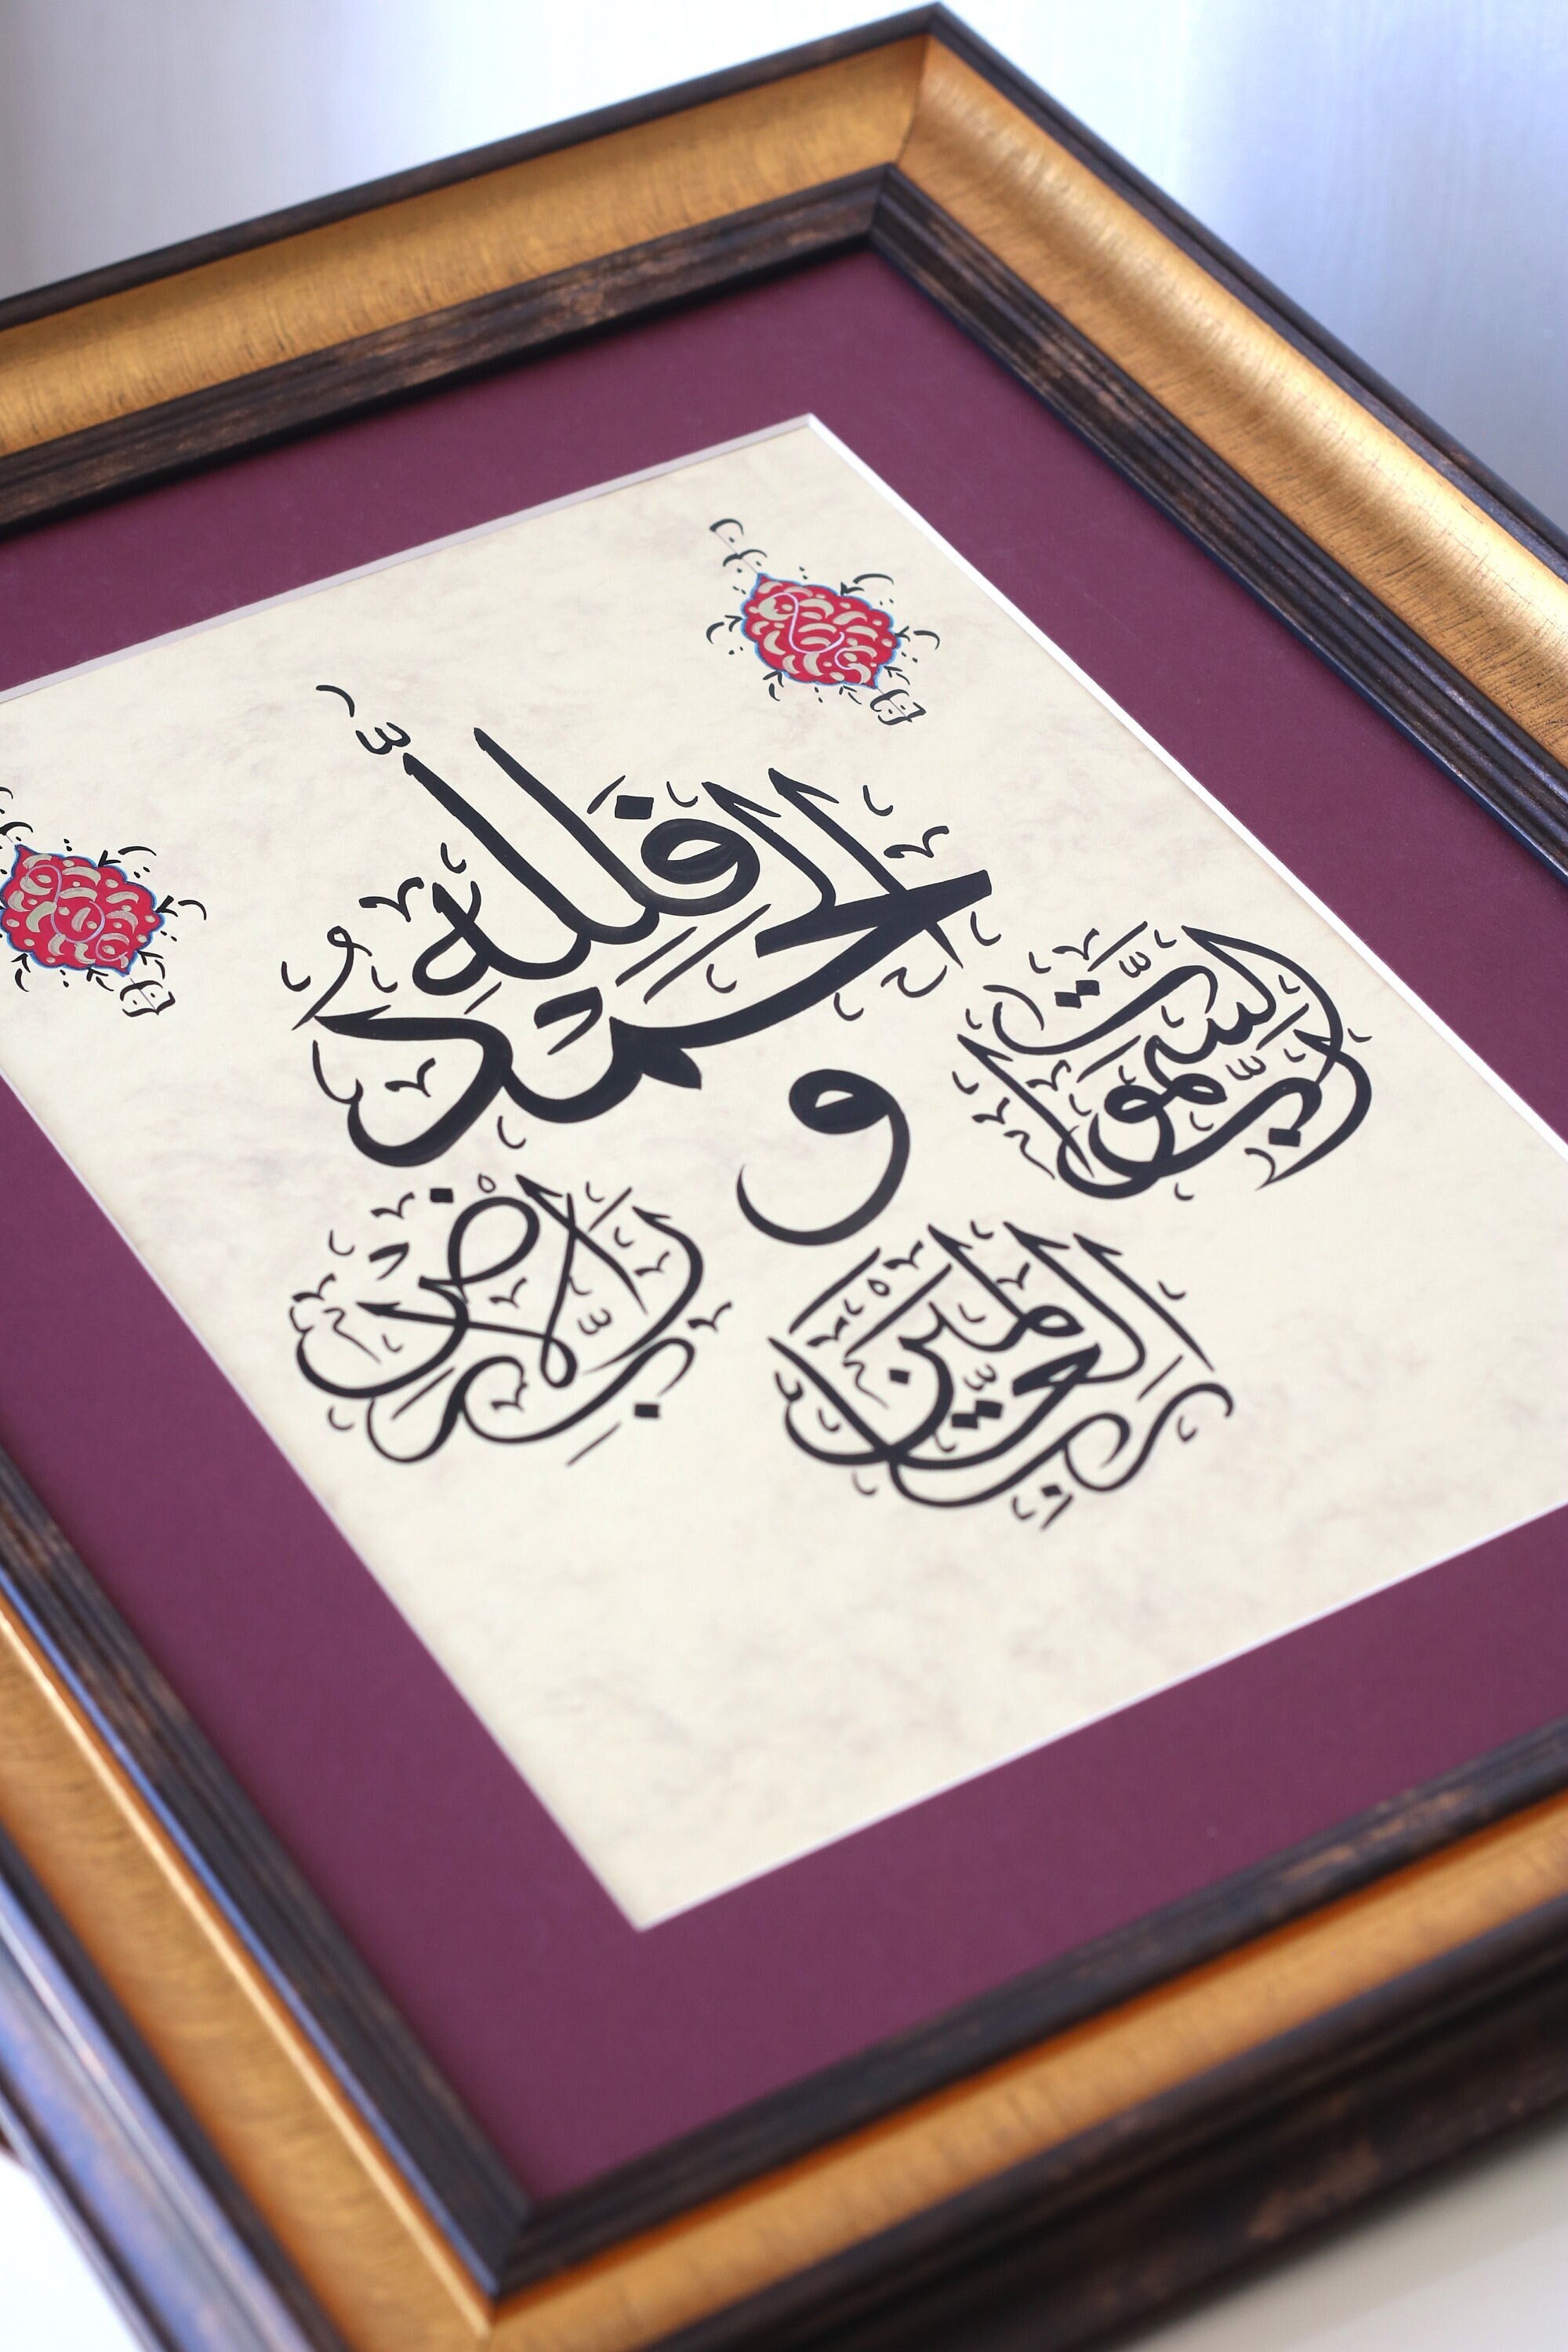 فلله الحمد
رب السموت
و
رب الارض
رب العلمين